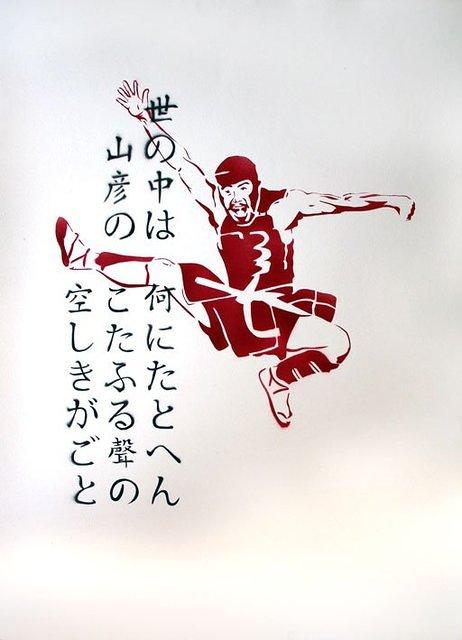 世の中は 何にたとへん
山彦の こたふる聲の
空しきがごと